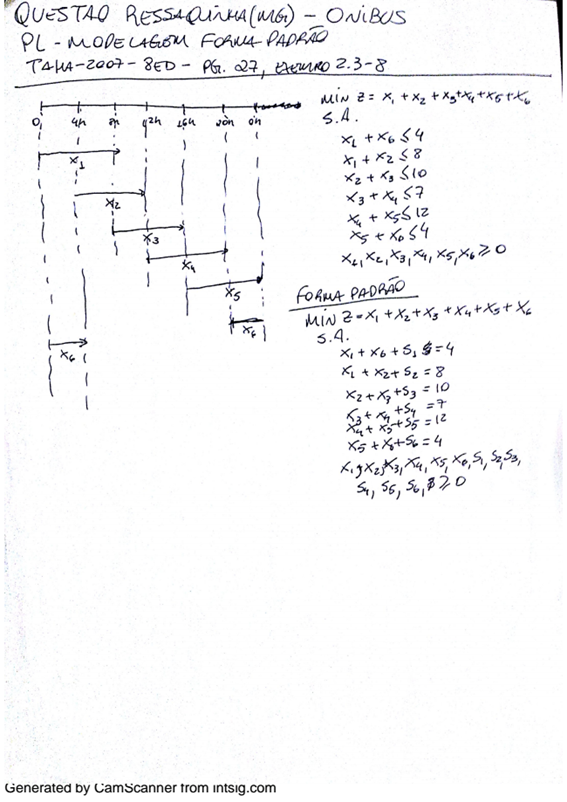 QUESTÃO RESSAQUINHA (MG) - ONIBUS
PL - MODELAGEM FORMA PADRÃO
TAHA-2007 - 8ED - PG. 27, 2.3-8
0 4h 8h 12h 16h 20h 0h
x1
x2
x3
x4
x5
x6
x6
MIN Z = x1 + x2 + x3 + x4 + x5 + x6
S.A.
x1 + x6 ≤ 4
x1 + x2 ≤ 8
x2 + x3 ≤ 10
x3 + x4 ≤ 7
x4 + x5 ≤ 12
x5 + x6 ≤ 4
x1, x2, x3, x4, x5, x6 ≥ 0
FORMA PADRÃO
MIN Z = x1 + x2 + x3 + x4 + x5 + x6
S.A.
x1 + x6 + S1 = 4
x1 + x2 + S2 = 8
x2 + x3 + S3 = 10
x3 + x4 + S4 = 7
x4 + x5 + S5 = 12
x5 + x6 + S6 = 4
x1, x2, x3, x4, x5, x6, S1, S2, S3,
S4, S5, S6, ≥ 0
Generated by CamScanner from intsig.com